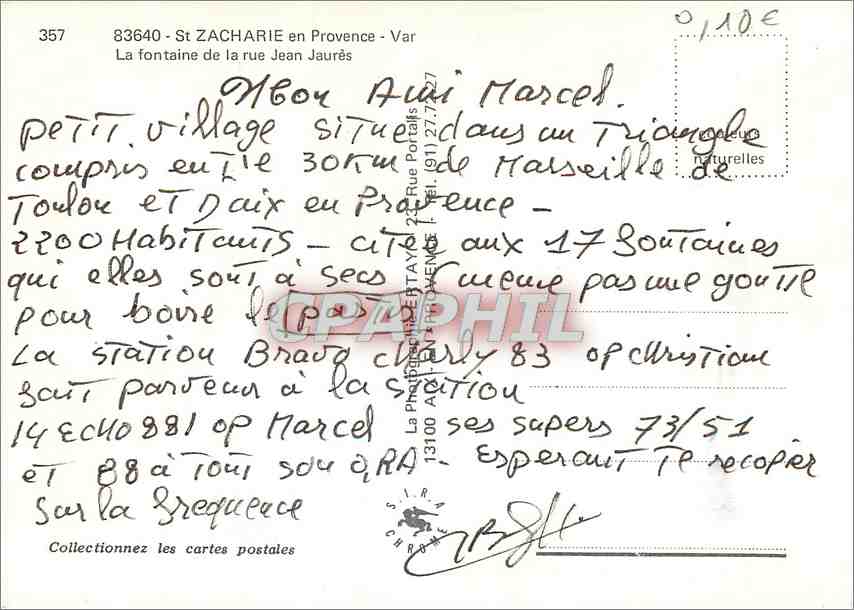 0,10€
357 83640 - St ZACHARIE en Provence - Var
La fontaine de la rue Jean Jaurès
Mon Ami Marcel.
petit village situé dans un Triangle
compris entre 30Km de Marseille de
Toulon et Daix en Provence -
2200 Habitants - citée aux 17 fontaines
qui elles sont à secs (meme pas une goutte
pour boire le pastis
La station Bravo charly 83 op christian
fait parvenir à la station
14 ECHO 881 op Marcel ses supers 73/51
et 88 à Tout son QRA - Esperant Te recopier
sur la frequence
couleurs
naturelles
La Photographie BERTAYO 23, Rue Portalis
13100 AIX-EN-PROVENCE - Tél. (91) 27.72.27
CPAPHIL
S.I.R.A
CHROME
Collectionnez les cartes postales